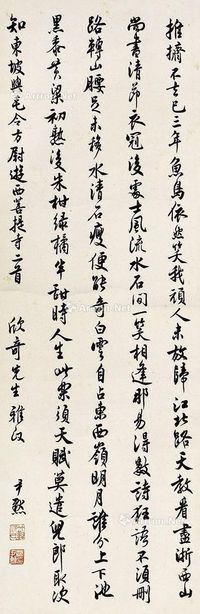 推擠不去已三年魚鳥依然笑我頑人未放歸江北路天教看盡浙西山
尚書清節衣冠後處士風流水石間一笑相逢那易得數詩狂語不須刪
路轉山腰足未移水清石瘦便能奇白雲自占東西嶺明月誰分上下池
黑黍黃粱初熟後朱柑綠橘半甜時人生此樂須天賦莫遣兒郎取次
知東坡與毛令方尉遊西菩提寺二首
欣奇先生雅
尹默